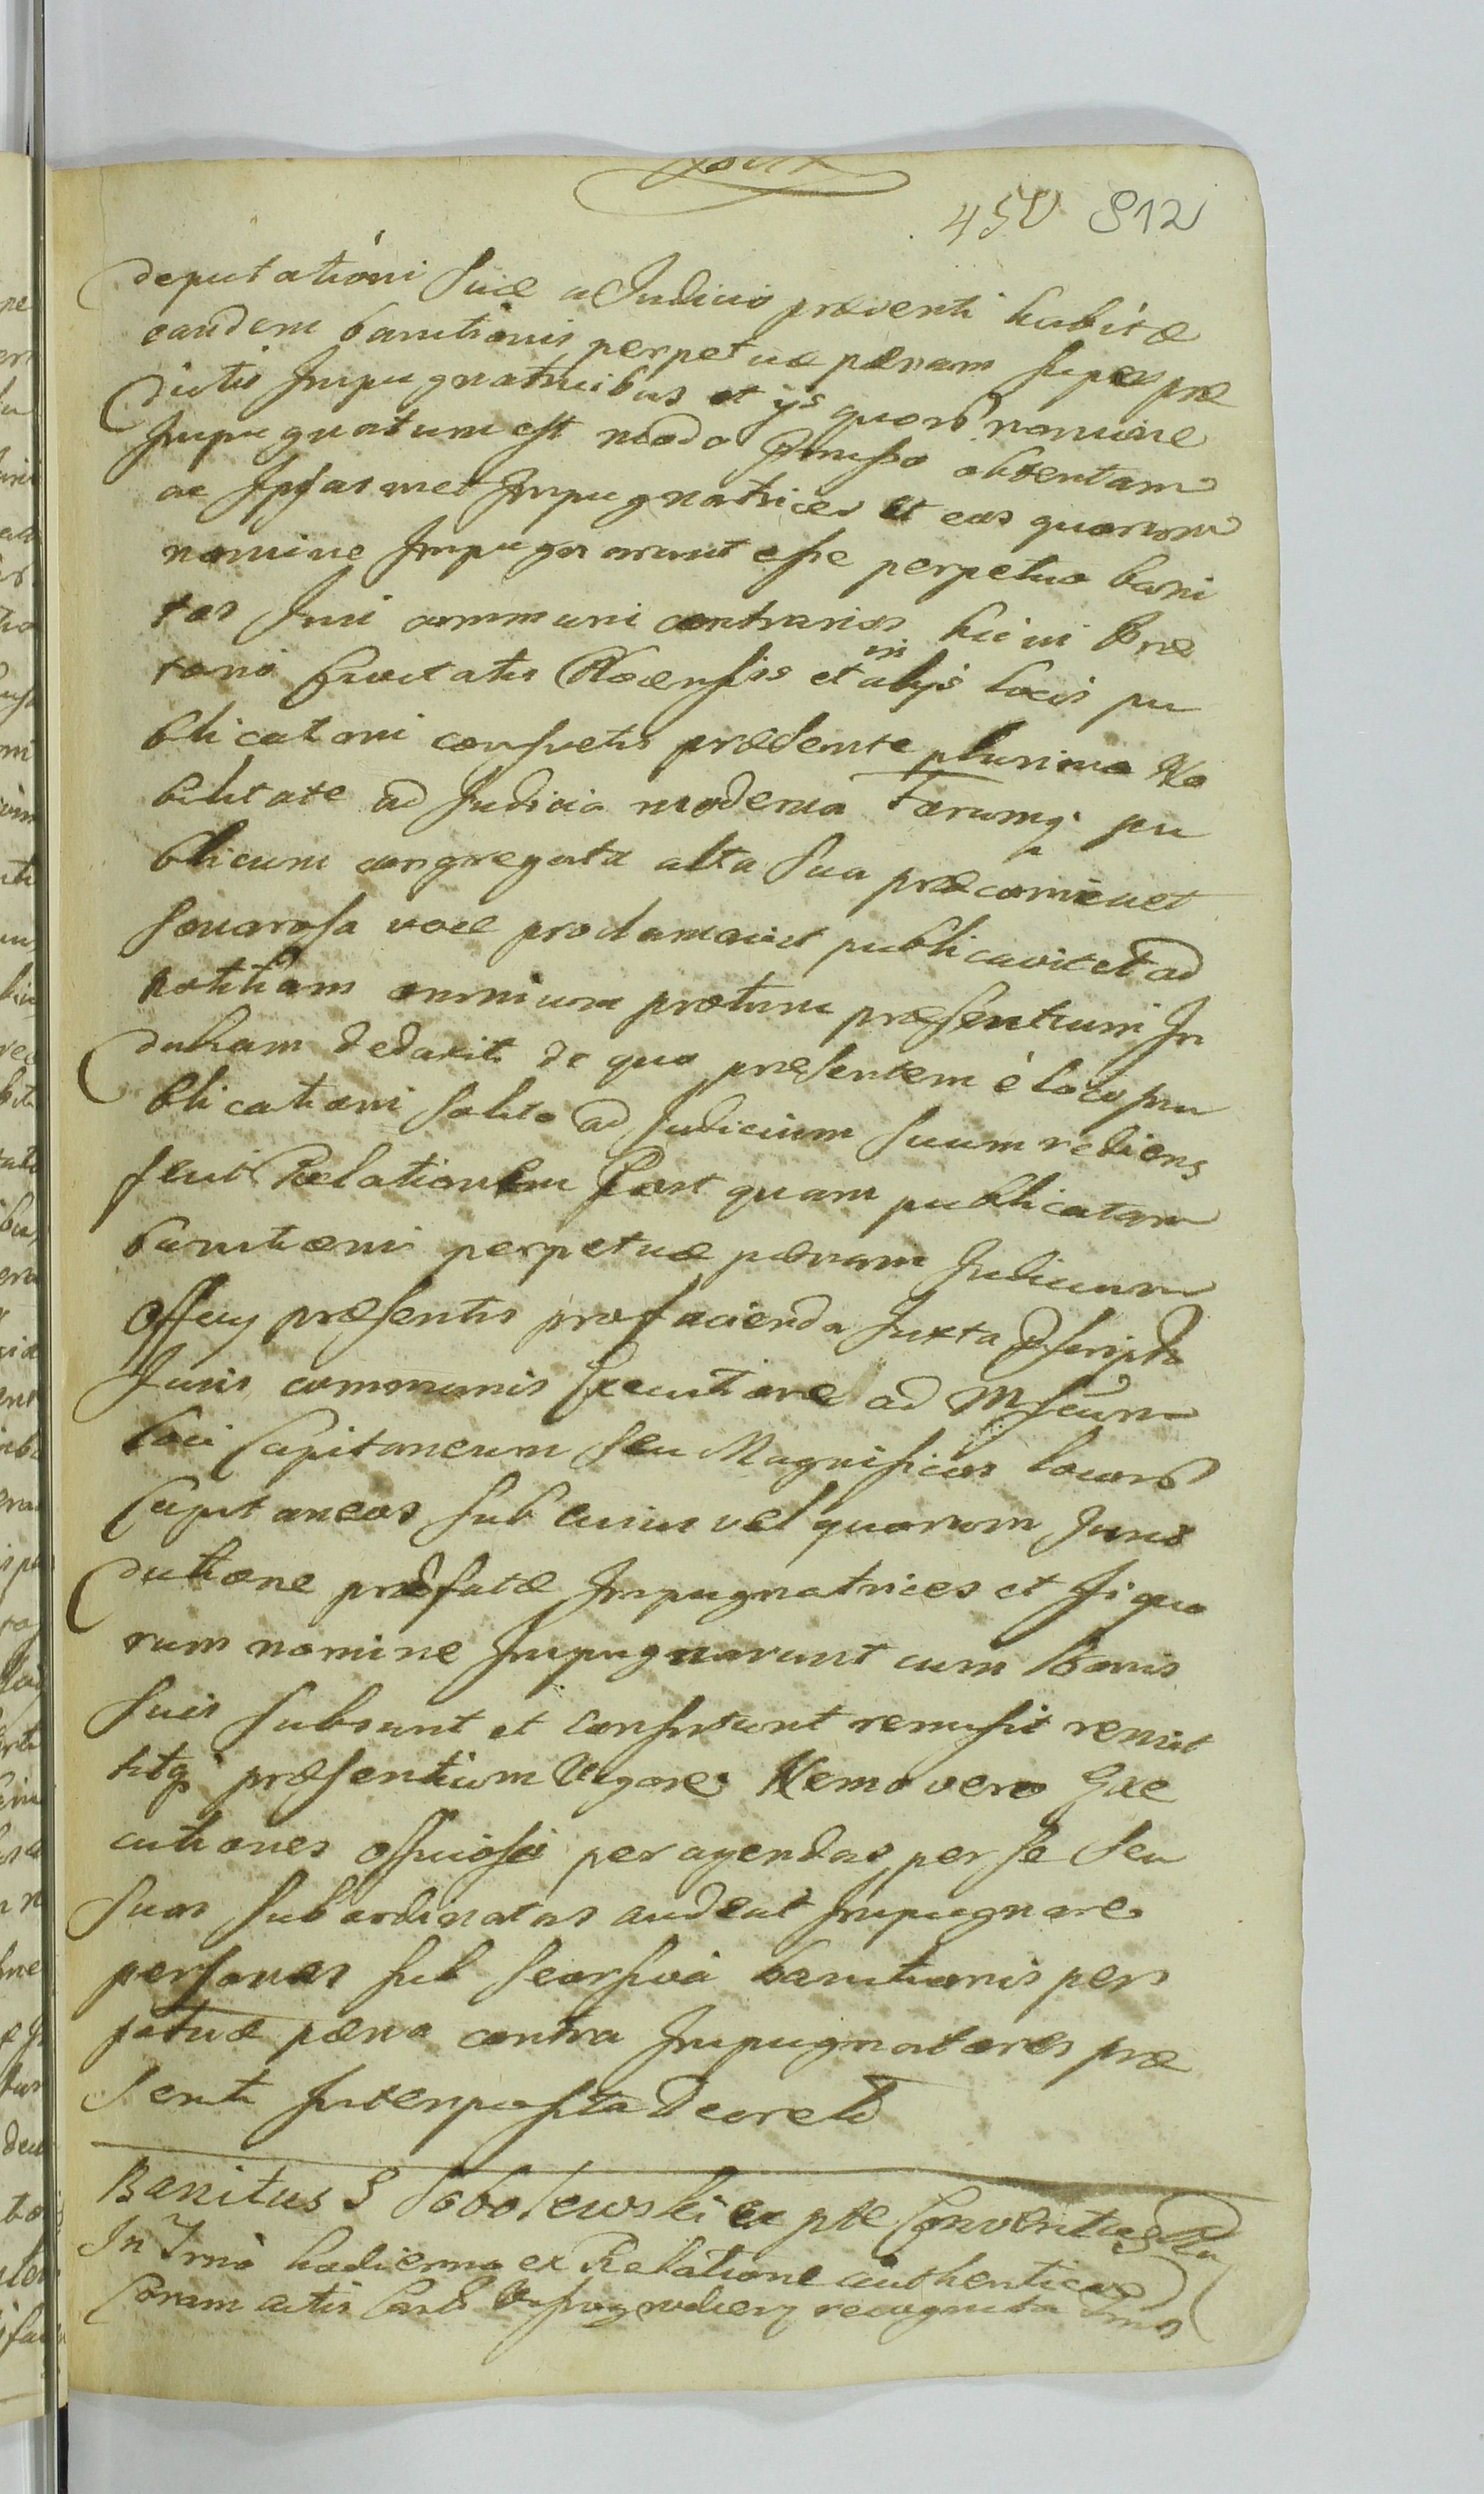 450 812
deputationi suæ a Judicio præsenti habitæ
eandem banitionis perpetuæ pænam super præ
dictis Impugnatricibus et ijs quorũ nomine
Impugnatum est modo præmisso obtentam
ac Ipsasmet Impugnatrices et eos quorum
nomine Impugnarunt esse perpetuo bani
tos Juri communi contrarios hic in Præ
torio Civitatis et in alijs locis pu
blicationi consvetis præsente plurima No
bilitate ad Judicia moderna Forumq; pu
blicum congregata alta sua præconica et
sonorosa voce proclamavit publicavit et ad
notitiam omnium protunc præsentium In
ductam dedaxit de quo præsentem è loco pu
blicationi solito ad Judicium suum rediens
fecit Relationem Post quam publicatam
banitionis perpetuæ pænam Judicium
Officij præsentis pro facienda Juxta præscripta
Juris communis Executione ad Mficum
loci Capitaneum seu Magnificos locorũ
Capitaneos sub cuius vel quorum Juris
dictione præfatæ Impugnatrices et hi quo
rum nomine Impugnarunt cum bonis
suis subsunt et consistunt remisit remit
titq; præsentium vigore Nemo vero Exe
cutiones officiose peragendas per se seu
suas subordinatas audeat Impugnare
personas sub seorsiva banitionis per
petuæ pæna contra Impugnatores præ
senti Interposita decreto
Banitus S Sobolewski ex pte Conventus
In Trno hodierno ex Relatione authentica
Coram actis recognita